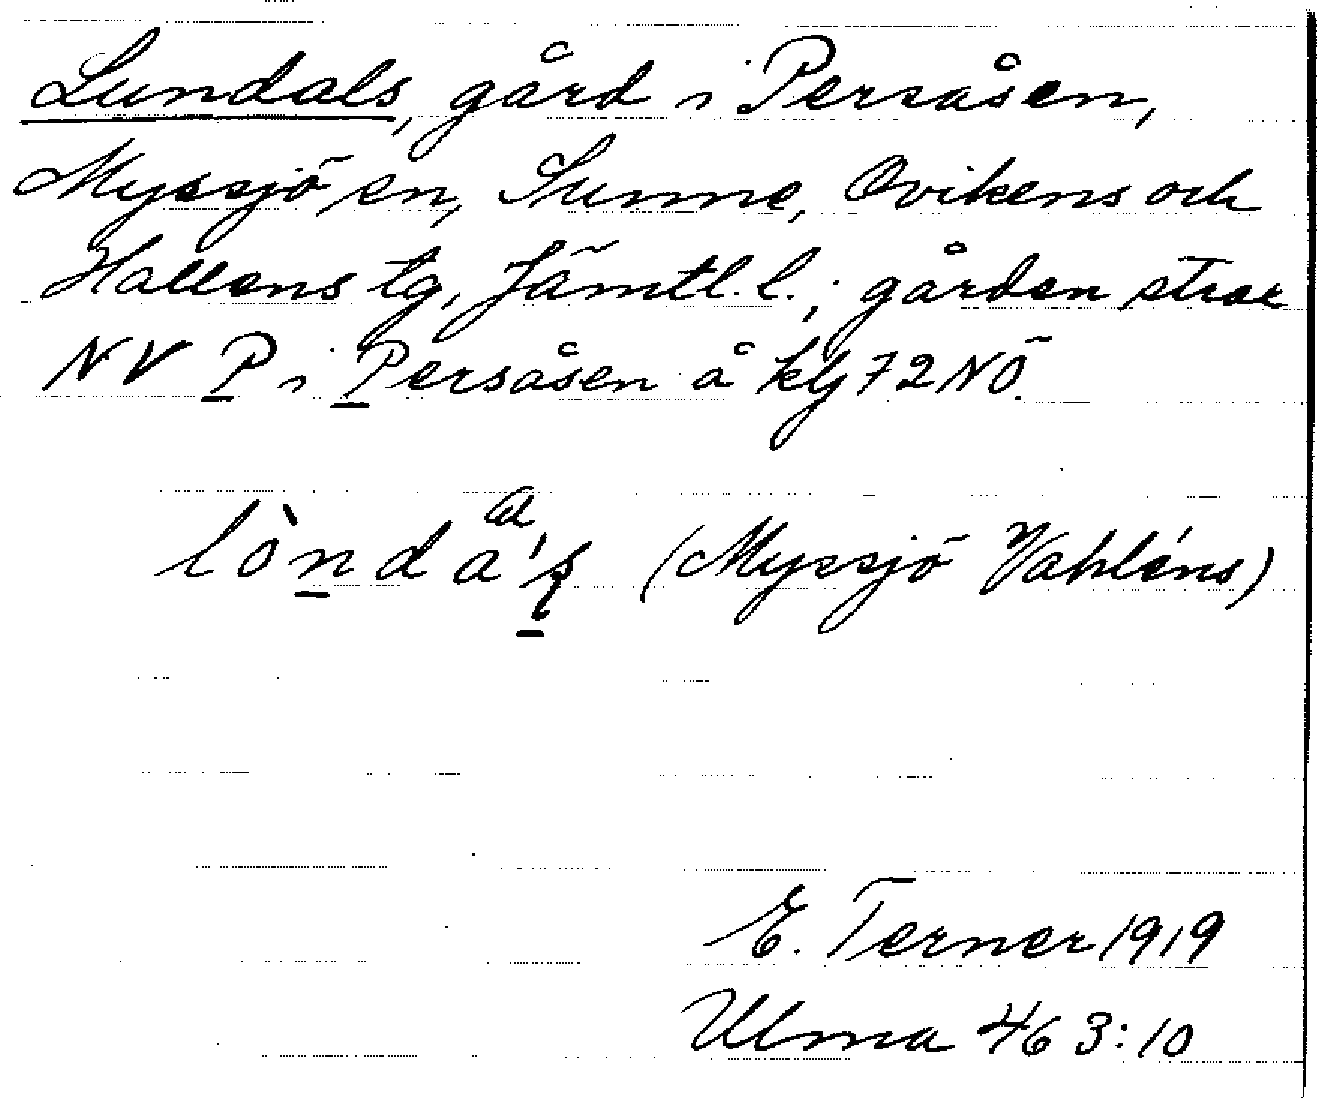 Lundals, gård i Persåsen,
Myssjö sn, Sunne, Ovikens och
Hallens tg, Jämtl. l.; gården strax
NV P i Persåsen å kbl 72 NÖ.
(Myssjö Vahléns)
E. Terner 1919
Ulma 463:10